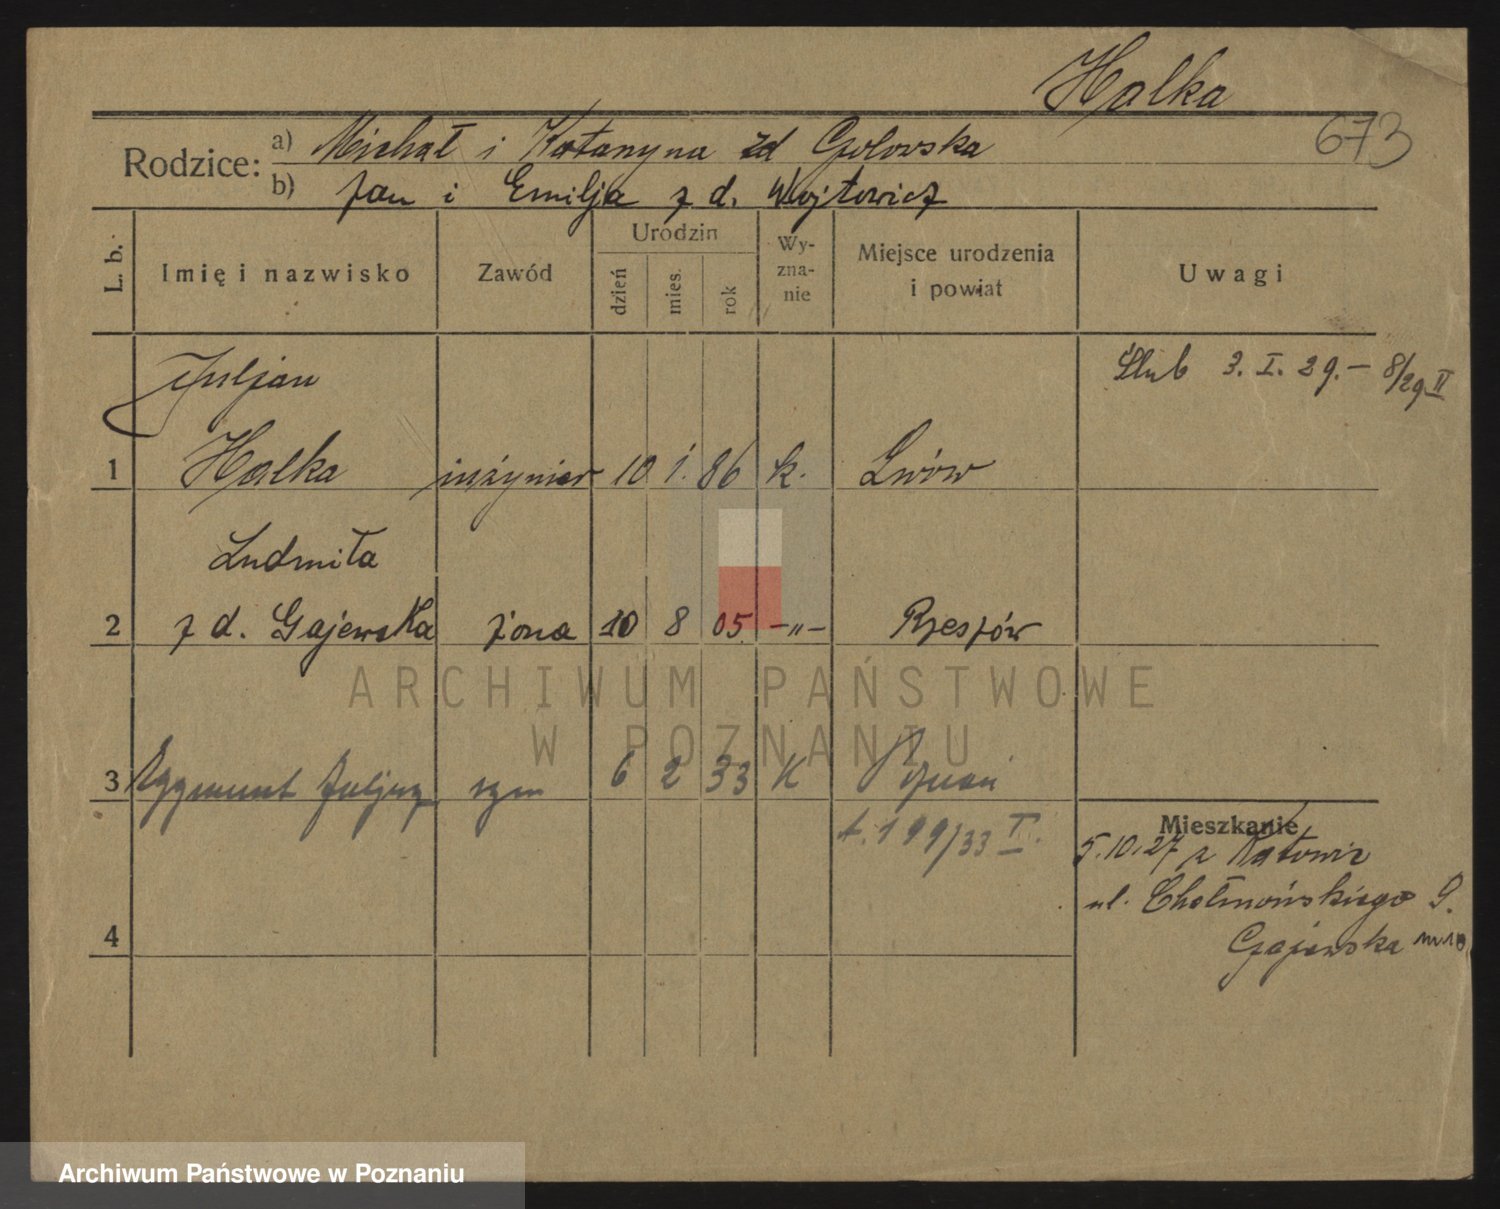 Halka
673
Rodzice: a) Michał i Katarzyna zd Golowska
b) Jan i Emilja z d. Wojtowicz
L. b. Imię i nazwisko Zawód Urodzin Wy-zna-nie Miejsce urodzenia i powiat Uwagi
dzień mies. rok
Juljan Ślub 3. I. 29. – 8/29 II
1 Halka inżynier 10 1. 86 k. Lwów
Ludmiła
2 z d. Gajewska żona 10 8 05 –„– Rzeszów
ARCHIWUM PAŃSTWOWE
W POZNANIU
3 Zygmunt Juljusz syn 6 2 33 K Poznań
Mieszkanie
199/33 I.
5.10.27 z Katowic
ul. Chełmońskiego 9.
4 Gajewska
Archiwum Państwowe w Poznaniu